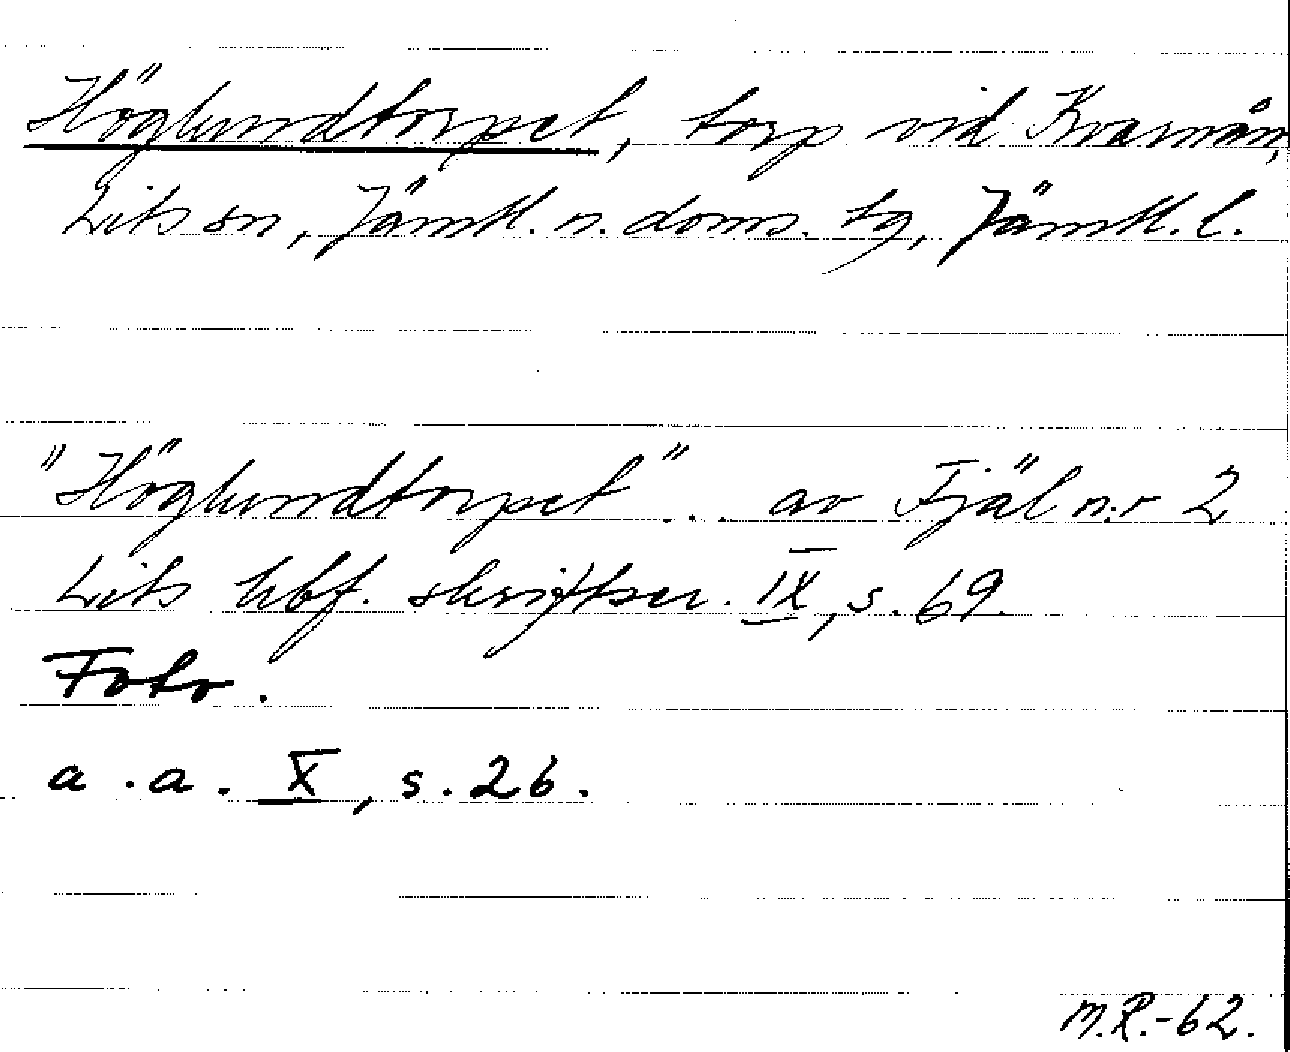 Höglundtorpet, torp vid Kvarnån,
Lits sn, Jämtl. n. doms. tg, Jämtl. l.
"Höglundtorpet" . . av Fjäl n:r 2
Lits hbf. skriftser. IX, s. 69.
Foto.
a.a. X, s. 26.
M.R.-62.